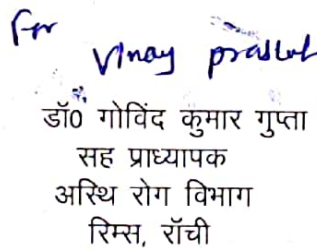 For
Vinay
डॉ0 गोविंद कुमार गुप्ता
सह प्राध्यापक
अस्थि रोग विभाग
रिम्स, रॉची